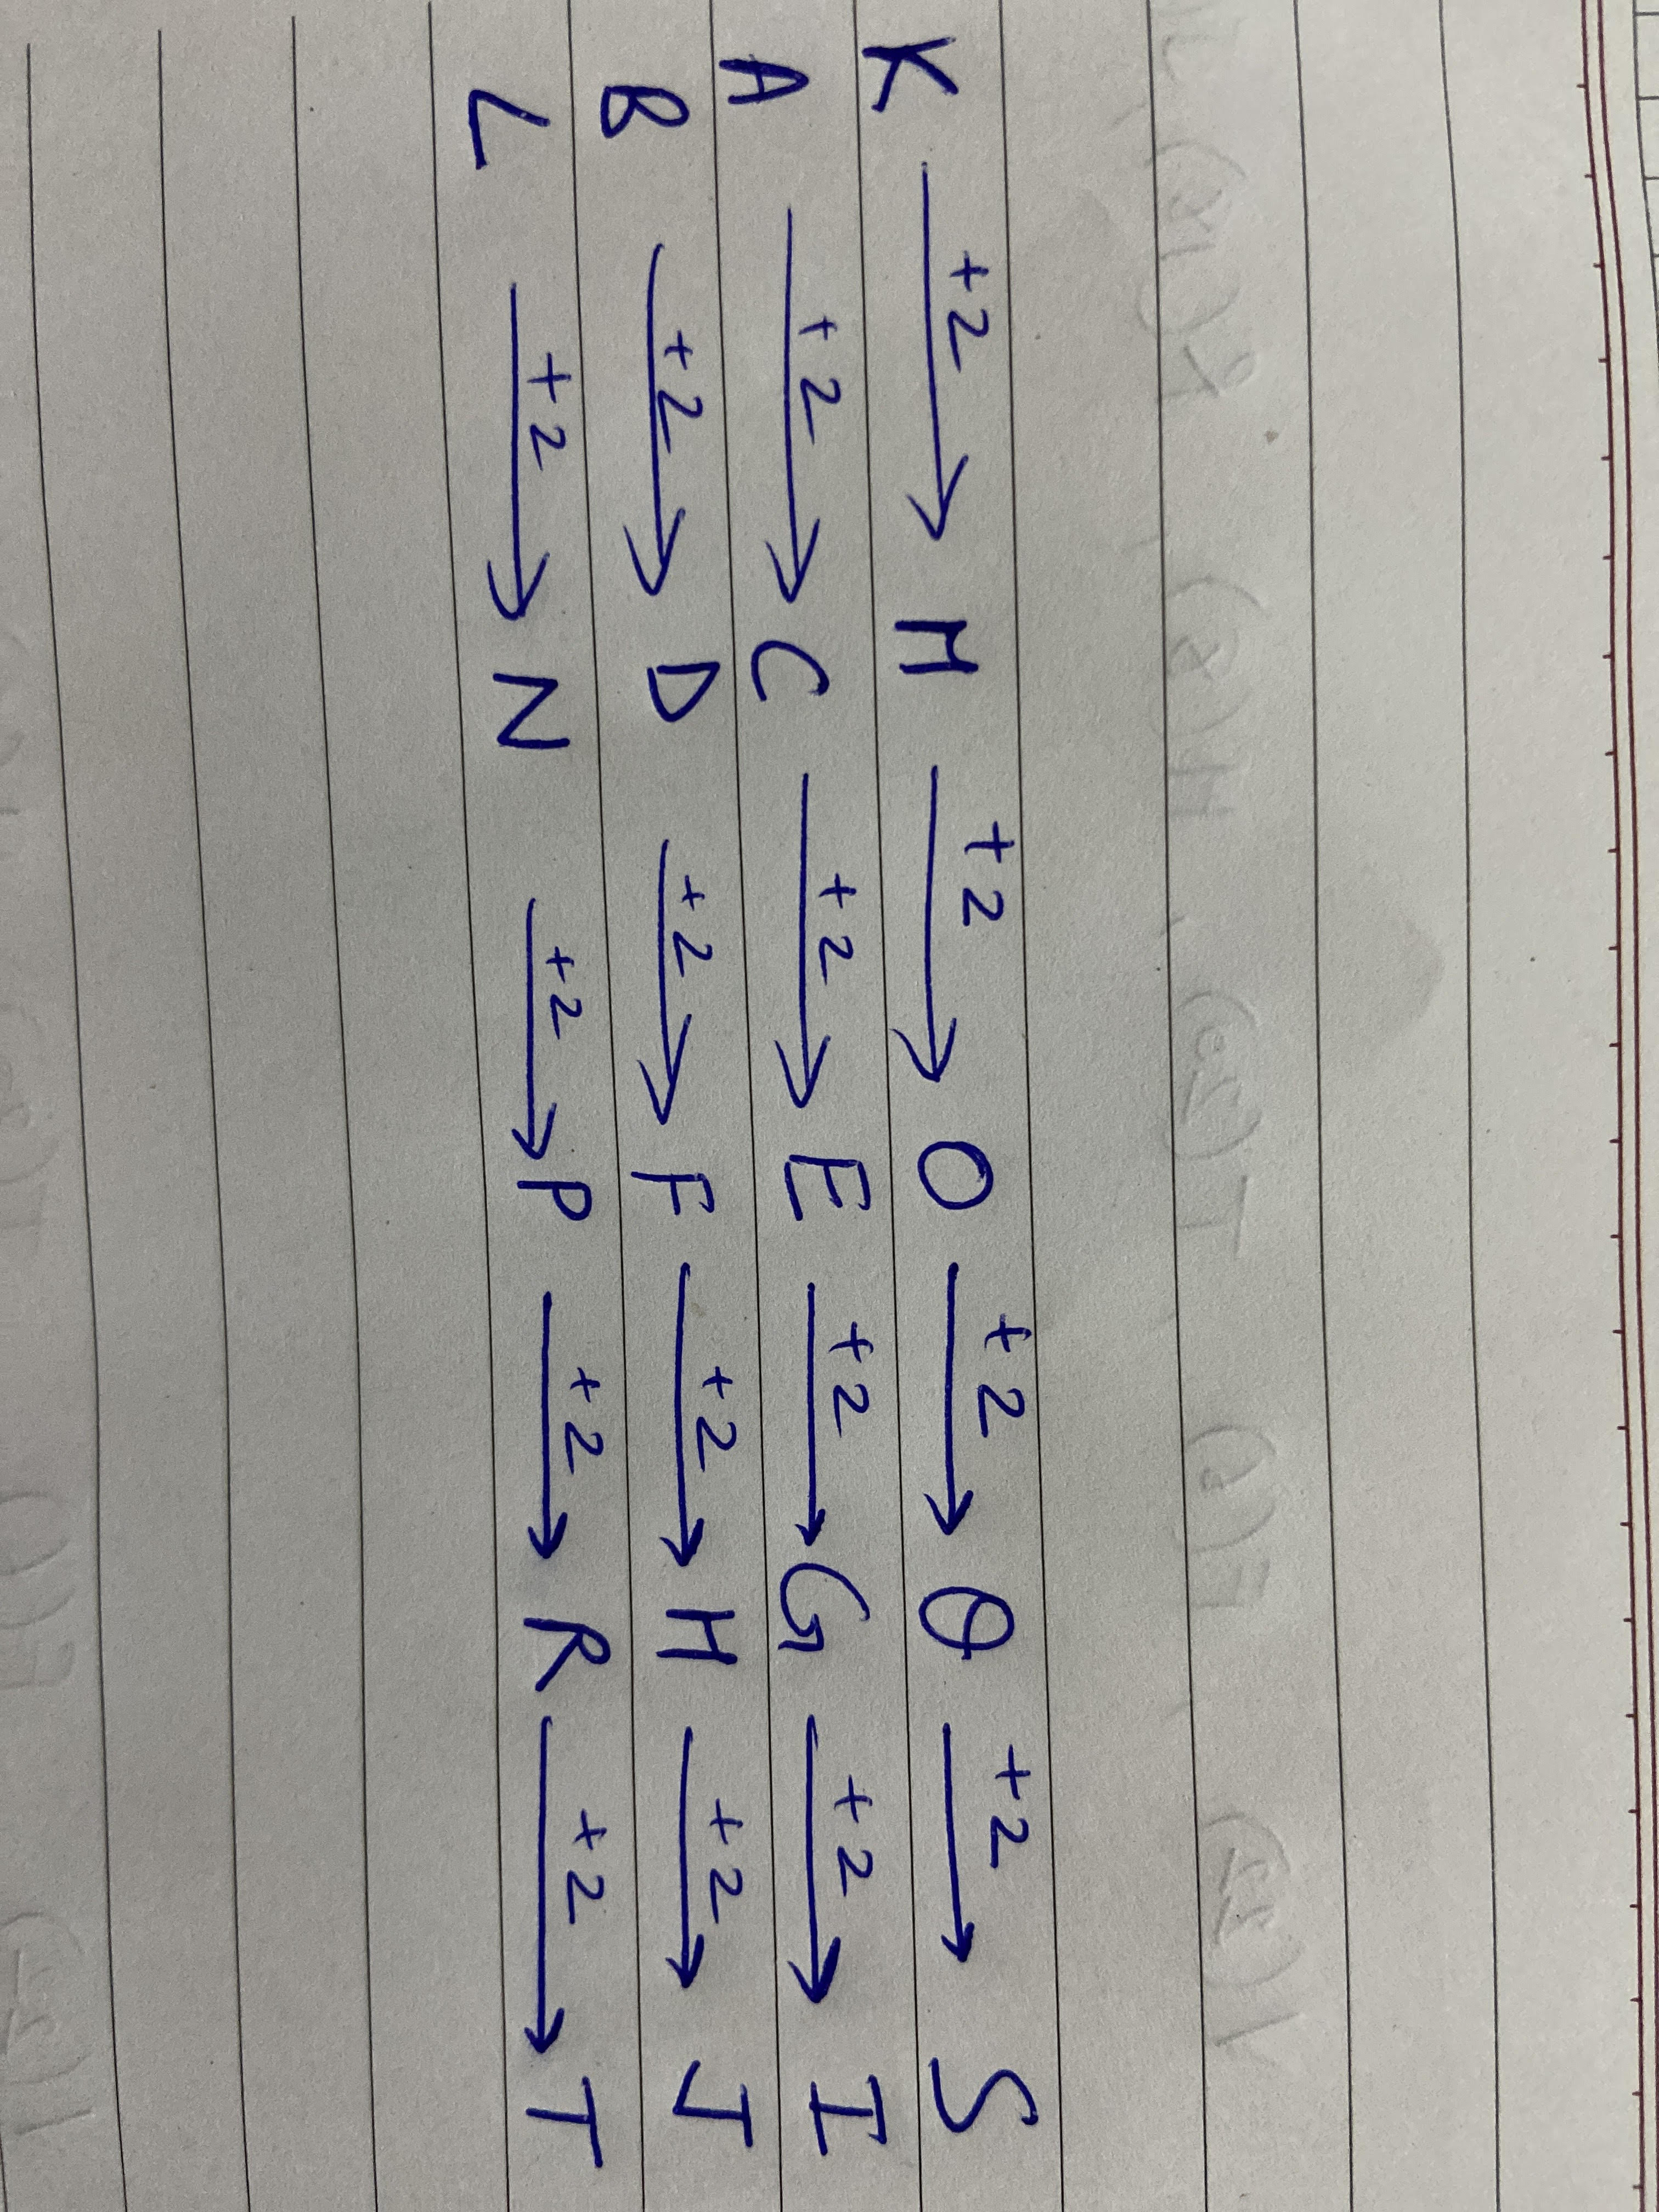 K +2→ M +2→ O +2→ Q +2→ S
A +2→ C +2→ E +2→ G +2→ I
B +2→ D +2→ F +2→ H +2→ J
L +2→ N +2→ P +2→ R +2→ T